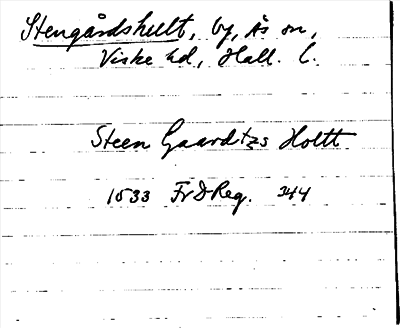 Stengårdshult, by, Ås sn,
Viske hd, Hall. l.
Steen Gaardtzs Holtt
1533 Fr I Reg. 344